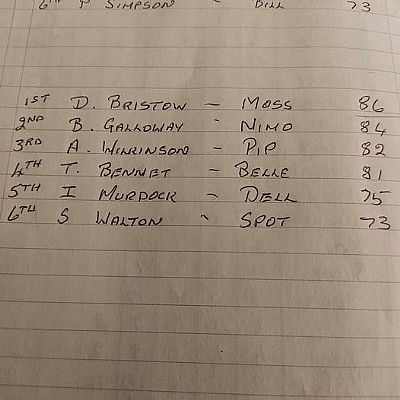 6TH P SIMPSON ~ BILL 73
1ST D. BRISTOW – MOSS 86
2ND B. GALLOWAY ~ NIMO 84
3RD A. WILKINSON – PIP 82
4TH T. BENNET – BELLE 81
5TH I MURDOCK – DELL 75
6TH S WALTON ~ SPOT 73